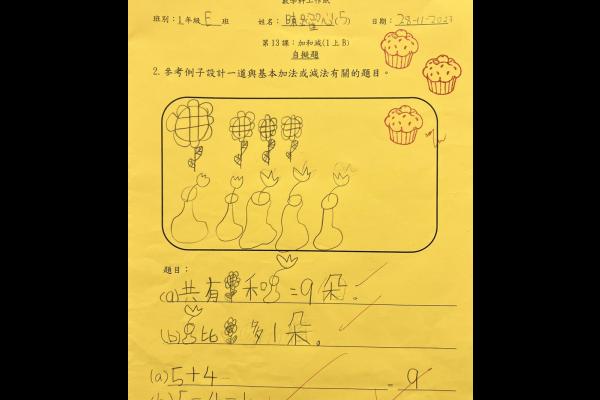 數學科工作紙
班別：1年級E班 姓名：(5) 日期：28-11-2023
第13課：加和減(1上B)
自擬題
2. 參考例子設計一道與基本加法或減法有關的題目。
題目：
(a)共有和=9朵。
(b)比多1朵。
(a)5+4 = 9